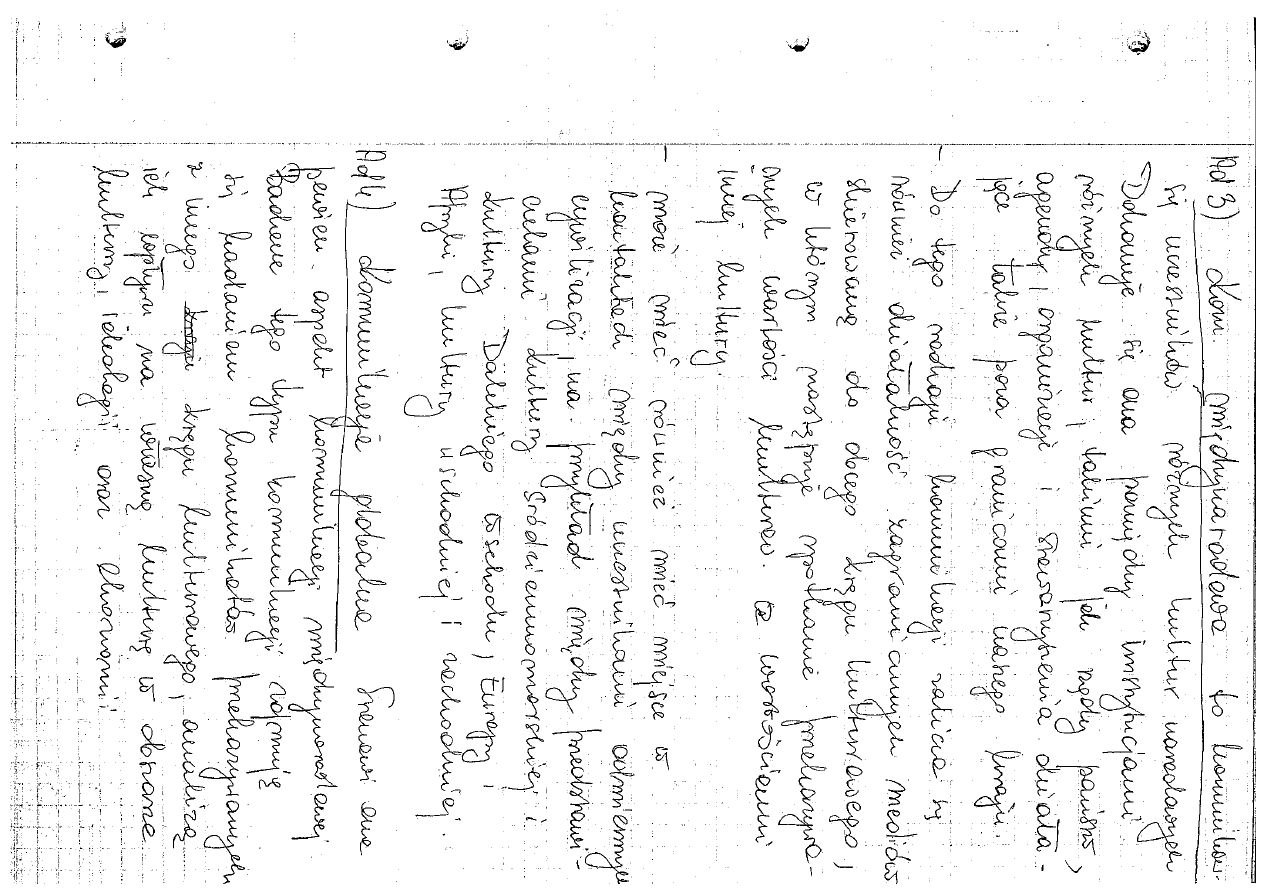 Ad 3) Kom. międzynarodowa to komunikow.
się uczestników różnych kultur narodowych
Dokonuje się ona pomiędzy instytucjami
różnych kultur, takimi jak rządy państw,
agendy, organizacje i stowarzyszenia działa-
jące także poza granicami naszego kraju.
- Do tego rodzaju komunikacji zalicza się
również działalność zagranicznych mediów
skierowaną do docego kręgu kulturowego,
w którym następuje spotkanie przekazywa-
nych wartości kulturow. z wartościami
innej kultury.
- może mieć również mieć miejsce w
kontaktach między uczestnikami odmiennych
cywilizacji, na przykład między przedstawi-
cielami kultury śródziemnomorskiej i
kultury Dalekiego Wschodu, Europy i
Afryki, kultury wschodniej i zachodniej.
Ad 4) Komunikacja globalna stanowi ona
pewien aspekt komunikacji międzynarodowej.
Badanie tego typu komunikacji zajmuje
się badaniem komunikatów przekazywanych
z innego kręgu kulturowego, analizą
ich wpływu na własną kulturę w obszarze
kultury, ideologii oraz ekonomii